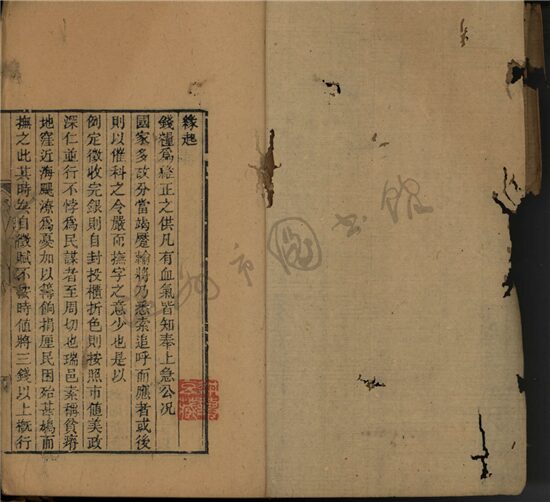 緣起
錢糧爲維正之供凡有血氣皆知奉上急公况
國家多故分當竭蹷輸將乃悉索追呼而應者或後
則以催科之令嚴而撫字之意少也是以
例定徵收完銀則自封投櫃折色則按照市値美政
深仁並行不悖爲民謀者至周切也瑞邑素稱貧瘠
地窪近海颶潦爲憂加以籌餉捐厘民困殆甚槁而
撫之此其時矣自徵賦不按時値將三錢以上概行
市圖書館